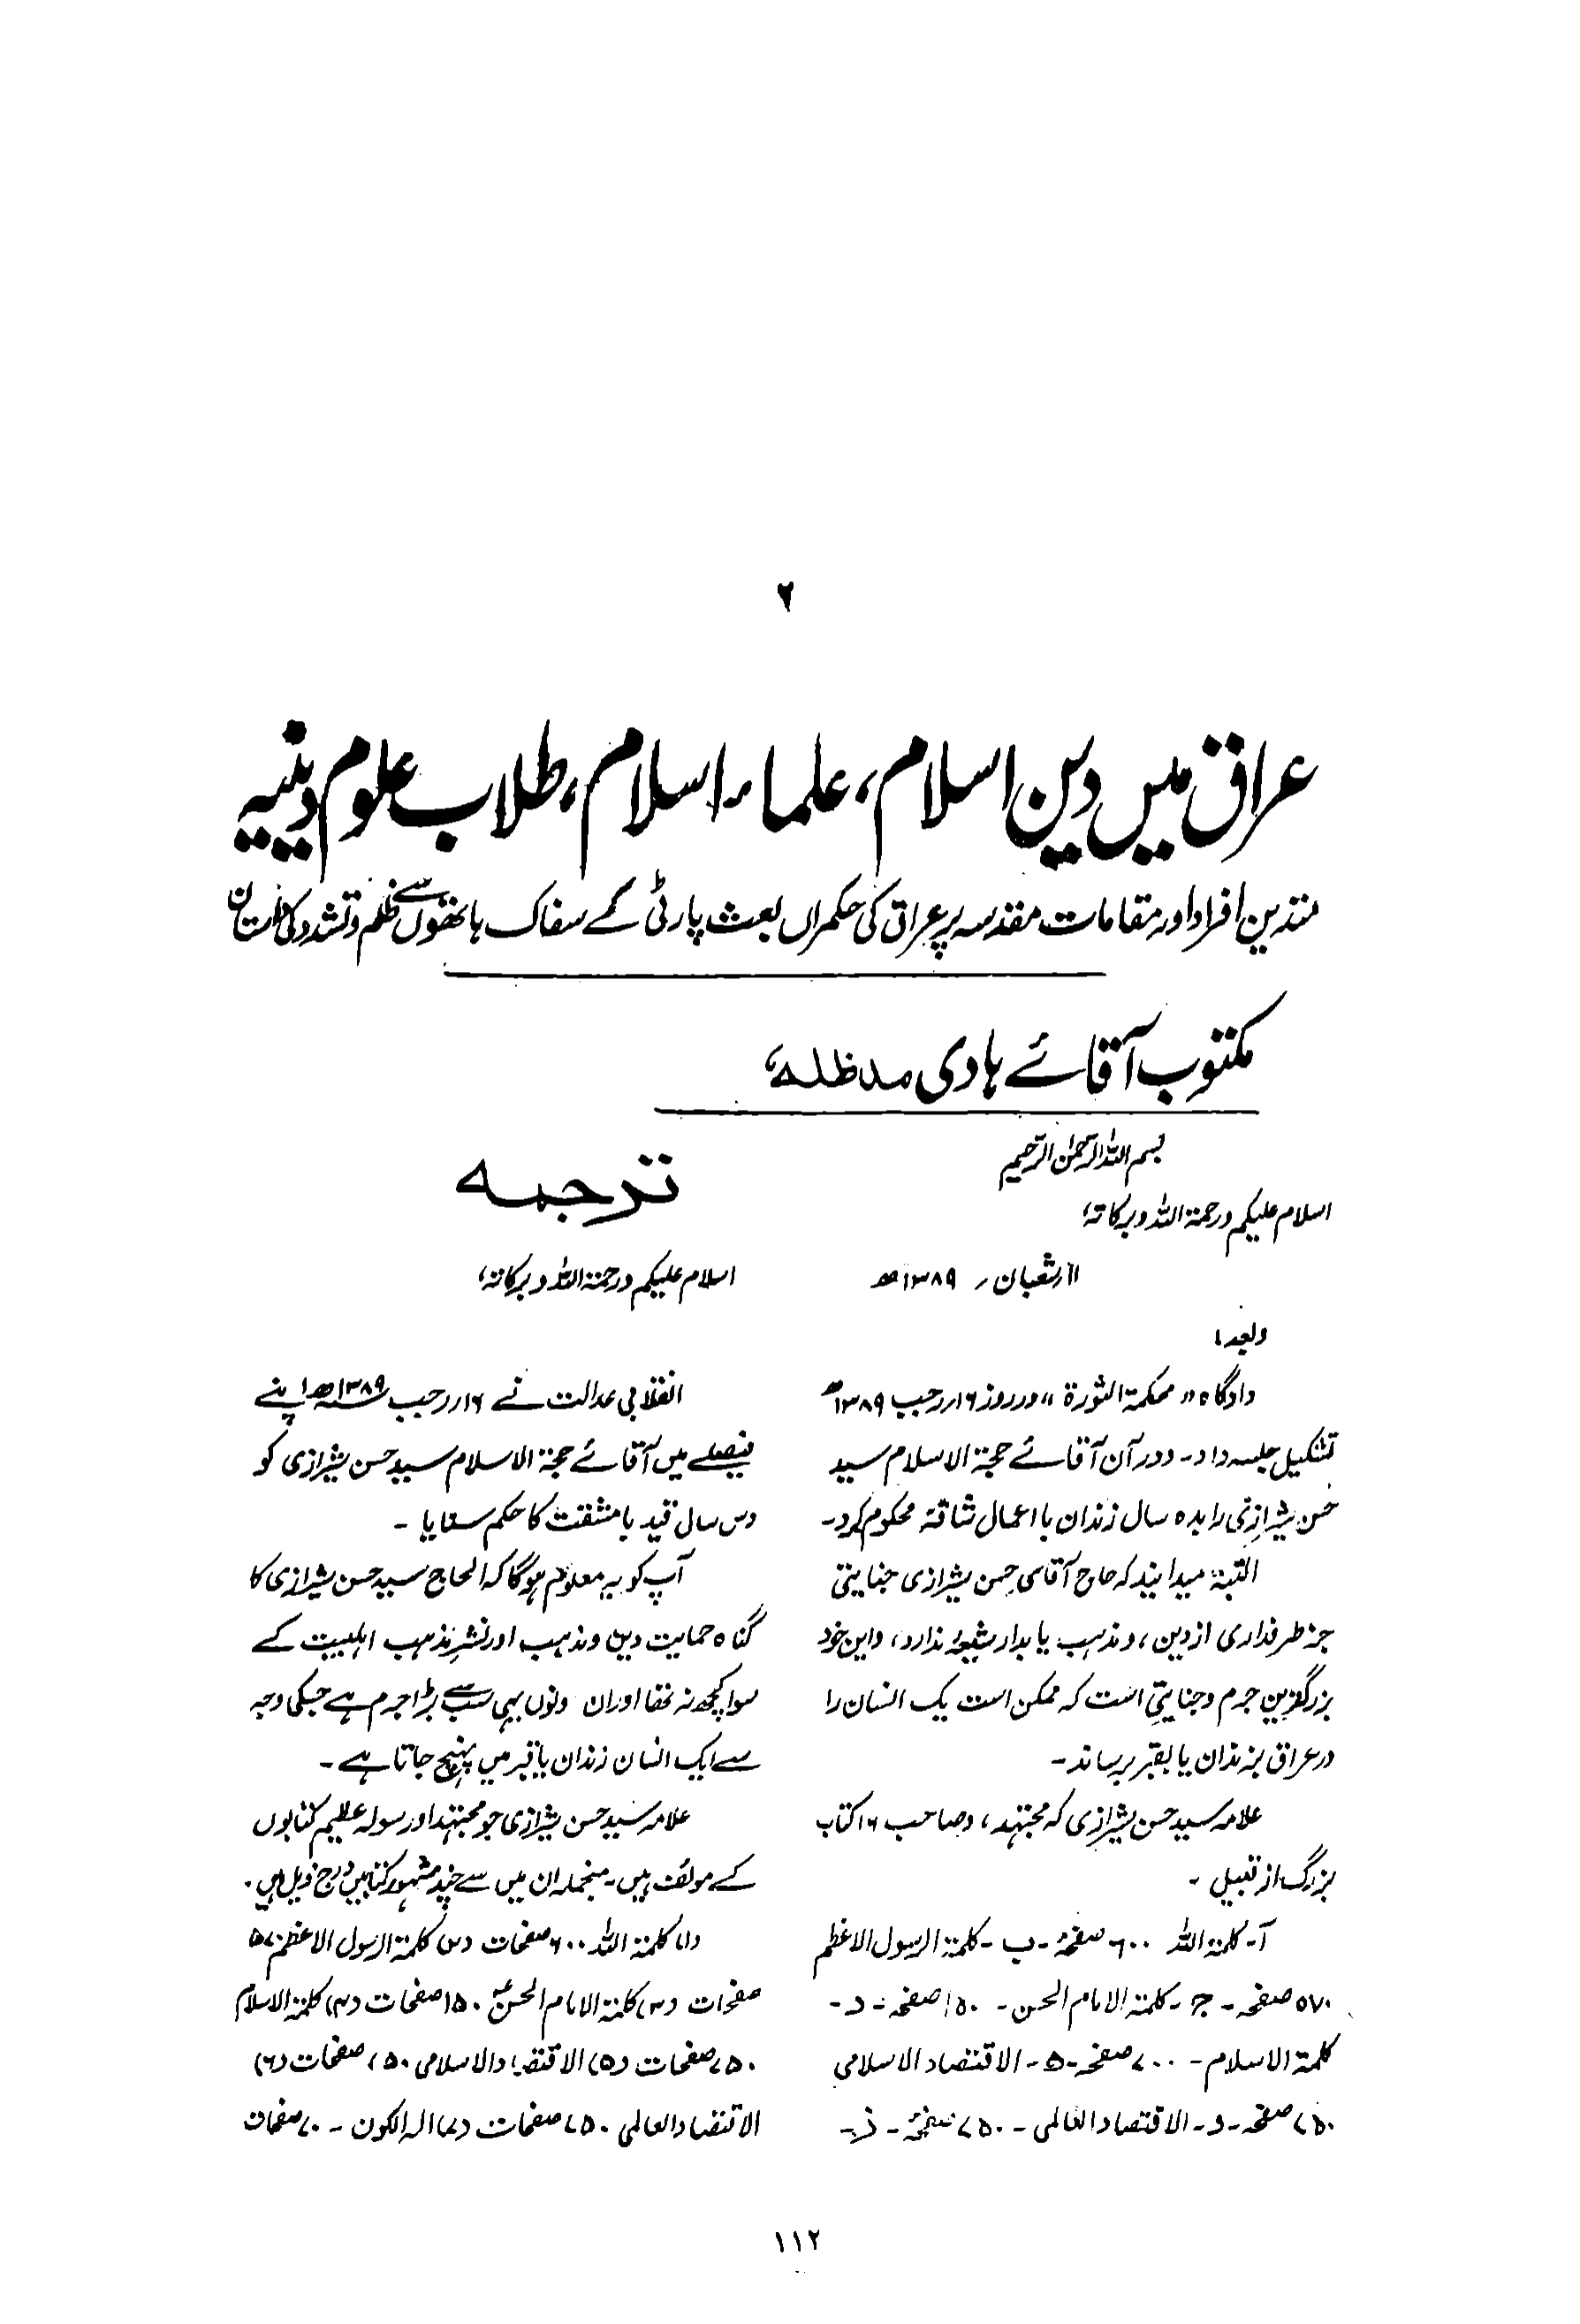 ۲
عراق میں دین اسلام، علماء اسلام، طلاب علوم دینیہ
متدین افراد اور مقامات مقدسہ پر عراق کی حکمراں بعث پارٹی کے سفاک ہاتھوں سے ظلم و تشدد کی داستان
مکتوب آقائے ہادی مدظلہ،
بسم اللہ الرحمٰن الرحیم
اسلام علیکم ورحمۃ اللہ وبرکاتہ،
۱۱ شعبان / ۱۳۸۹ھ
وبعد،
دادگاہ "محکمۃ الثورۃ" در روز ۱۶ رجب ۱۳۸۹ھ
تشکیل جلسہ داد۔ ودر آن آقائے حجۃ الاسلام سید
حسن شیرازی را بدہ سال زندان با اعمال شاقۃ محکوم کرد۔
البتۃ میدانید کہ حاج آقای حسن شیرازی جنایتی
جز طرفداری از دین، ومذہب یا بدار شیعۂ ندارد، واین خود
بزرگترین جرم وجنایتی است کہ ممکن است یک انسان را
در عراق بزندان یا بقبر برساند۔
علامہ سید حسن شیرازی کہ مجتہد، وصاحب ۱۶ کتاب
بزرگ از قبیل ۔
آ۔ کلمۃ اللہ ۶۰۰ صفحۂ ۔ ب ۔ کلمۃ الرسول الاعظم
۵۷۰ صفحہ ۔ ج ۔ کلمۃ الامام الحسن ۔ ۱۵۰ صفحہ ۔ د ۔
کلمۃ الاسلام ۔ ۷۰۰ صفحہ ۔ ۵ ۔ الاقتصاد الاسلامی
۷۵۰ صفحہ ۔ و ۔ الاقتصاد العالمی ۔ ۷۵۰ صفحۂ ۔ ز ۔
ترجمہ
اسلام علیکم ورحمۃ اللہ وبرکاتہ،
انقلابی عدالت نے ۱۶ رجب ۱۳۸۹ھ اپنے
فیصلے میں آقائے حجۃ الاسلام سید حسن شیرازی کو
دس سال قید با مشقت کا حکم سنایا ۔
آپ کو یہ معلوم ہوگا کہ الحاج سید حسن شیرازی کا
گناہ حمایت دین ومذہب اور نشر مذہب اہلبیت کے
سوا کچھ نہ تھا اور ان دنوں یہی سب سے بڑا جرم ہے جسکی وجہ
سے ایک انسان زندان یا قبر میں پہنچ جاتا ہے ۔
علامہ سید حسن شیرازی جو مجتہد اور سولہ عظیم کتابوں
کے مولف ہیں۔ منجملہ ان میں سے چند مشہور کتابیں درج ذیل ہیں۔
(۱) کلمۃ اللہ ۶۰۰ صفحات (۲) کلمۃ الرسول الاعظم ۵۷۰
صفحات (۳) کلمۃ الامام الحسنؑ ۱۵۰ صفحات (۴) کلمۃ الاسلام
۷۵۰ صفحات (۵) الاقتصاد الاسلامی ۷۵۰ صفحات (۶)
الاقتصاد العالمی ۷۵۰ صفحات (۷) الہ الکون ۔ ۷۰ صفحات
۱۱۲